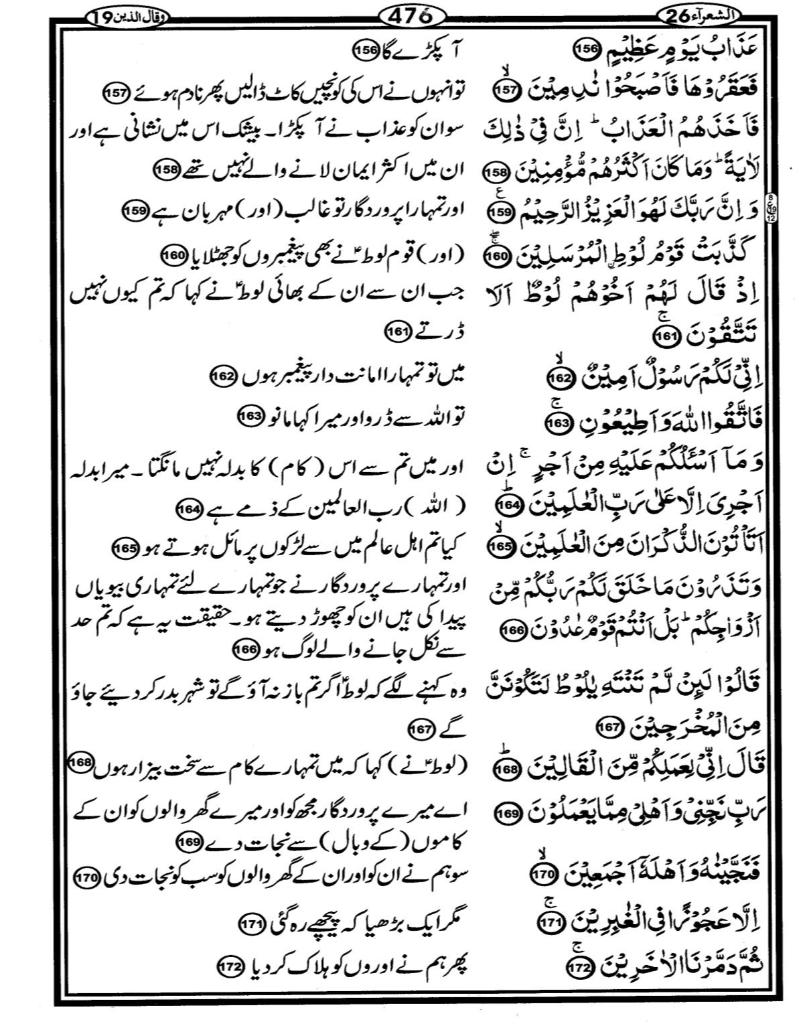 الشعرآء 26
476
وقال الذین 19
عَذَابُ يَوْمٍ عَظِيْمٍ 156
آ پکڑے گا 156
فَعَقَرُوْهَا فَاَصْبَحُوْا نٰدِمِيْنَ ۙ 157
تو انہوں نے اس کی کونچیں کاٹ ڈالیں پھر نادم ہوئے 157
فَاَخَذَهُمُ الْعَذَابُ ؕ اِنَّ فِيْ ذٰلِكَ
سو ان کو عذاب نے آ پکڑا۔ بیشک اس میں نشانی ہے اور
لَاٰيَةً ؕ وَمَا كَانَ اَكْثَرُهُمْ مُّؤْمِنِيْنَ 158
ان میں اکثر ایمان لانے والے نہیں تھے 158
وَاِنَّ رَبَّكَ لَهُوَ الْعَزِيْزُ الرَّحِيْمُ ع 159
اور تمہارا پروردگار تو غالب (اور) مہربان ہے 159
كَذَّبَتْ قَوْمُ لُوْطِ ۨالْمُرْسَلِيْنَ 160
(اور) قوم لوطؑ نے بھی پیغمبروں کو جھٹلایا 160
اِذْ قَالَ لَهُمْ اَخُوْهُمْ لُوْطٌ اَلَا
جب ان سے ان کے بھائی لوطؑ نے کہا کہ تم کیوں نہیں
تَتَّقُوْنَ ۚ 161
ڈرتے 161
اِنِّيْ لَكُمْ رَسُوْلٌ اَمِيْنٌ ۙ 162
میں تو تمہارا امانت دار پیغمبر ہوں 162
فَاتَّقُوا اللّٰهَ وَاَطِيْعُوْنِ ۚ 163
تو اللہ سے ڈرو اور میرا کہا مانو 163
وَمَآ اَسْـَٔلُكُمْ عَلَيْهِ مِنْ اَجْرٍ ۚ اِنْ
اور میں تم سے اس (کام) کا بدلہ نہیں مانگتا۔ میرا بدلہ
اَجْرِيَ اِلَّا عَلٰى رَبِّ الْعٰلَمِيْنَ ؕ 164
(اللہ) رب العالمین کے ذمے ہے 164
اَتَاْتُوْنَ الذُّكْرَانَ مِنَ الْعٰلَمِيْنَ ۙ 165
کیا تم اہل عالم میں سے لڑکوں پر مائل ہوتے ہو 165
وَتَذَرُوْنَ مَا خَلَقَ لَكُمْ رَبُّكُمْ مِّنْ
اور تمہارے پروردگار نے جو تمہارے لئے تمہاری بیویاں
اَزْوَاجِكُمْ ؕ بَلْ اَنْتُمْ قَوْمٌ عٰدُوْنَ 166
پیدا کی ہیں ان کو چھوڑ دیتے ہو۔ حقیقت یہ ہے کہ تم حد
سے نکل جانے والے لوگ ہو 166
قَالُوْا لَىِٕنْ لَّمْ تَنْتَهِ يٰلُوْطُ لَتَكُوْنَنَّ
وہ کہنے لگے کہ لوطؑ اگر تم باز نہ آؤ گے تو شہر بدر کر دیئے جاؤ
مِنَ الْمُخْرَجِيْنَ 167
گے 167
قَالَ اِنِّيْ لِعَمَلِكُمْ مِّنَ الْقَالِيْنَ ؕ 168
(لوطؑ نے) کہا کہ میں تمہارے کام سے سخت بیزار ہوں 168
رَبِّ نَجِّنِيْ وَاَهْلِيْ مِمَّا يَعْمَلُوْنَ 169
اے میرے پروردگار مجھ کو اور میرے گھر والوں کو ان کے
کاموں (کے وبال) سے نجات دے 169
فَنَجَّيْنٰهُ وَاَهْلَهٗٓ اَجْمَعِيْنَ ۙ 170
سو ہم نے ان کو اور ان کے گھر والوں کو سب کو نجات دی 170
اِلَّا عَجُوْزًا فِي الْغٰبِرِيْنَ ۚ 171
مگر ایک بڑھیا کہ پیچھے رہ گئی 171
ثُمَّ دَمَّرْنَا الْاٰخَرِيْنَ ۚ 172
پھر ہم نے اوروں کو ہلاک کر دیا 172